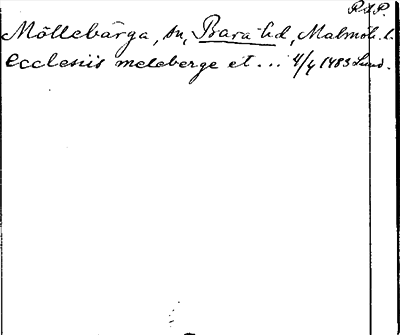 R.A.P.
Möllebärga, sn, Bara hd, Malmöh. l.
ecclesiis meleberge et ... 4/4 1483 Lund.